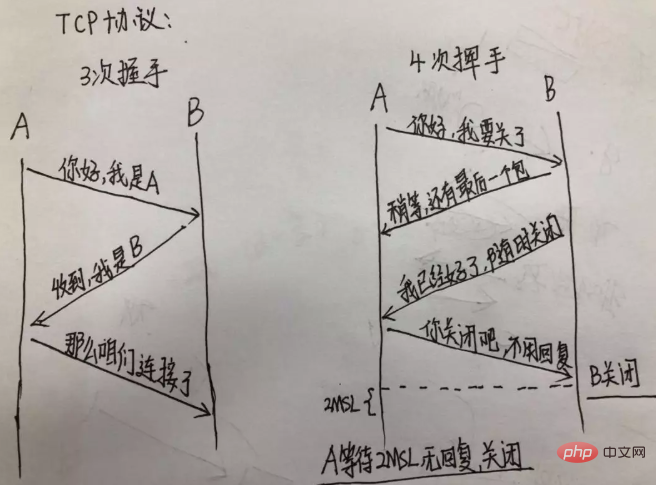 TCP协议:
3次握手
A
B
你好,我是A
收到,我是B
那么咱们连接了
4次挥手
A
B
你好,我要关了
稍等,还有最后一个包
我已经好了,随时关闭
你关闭吧,不用回复
2MSL
B关闭
A等待2MSL,无回复,关闭
php 中文网